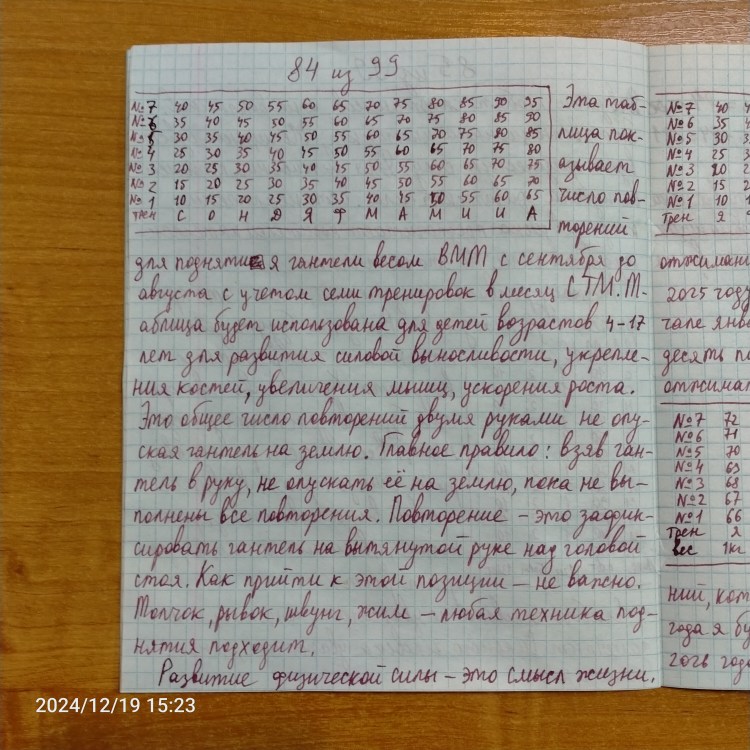 84 из 99
№7 40 45 50 55 60 65 70 75 80 85 90 95
№6 35 40 45 50 55 60 65 70 75 80 85 90
№5 30 35 40 45 50 55 60 65 70 75 80 85
№4 25 30 35 40 45 50 55 60 65 70 75 80
№3 20 25 30 35 40 45 50 55 60 65 70 75
№2 15 20 25 30 35 40 45 50 55 60 65 70
№1 10 15 20 25 30 35 40 45 50 55 60 65
трен С О Н Д Я Ф М А М И И А
Эта таб-
лица пок-
азывает
число пов-
торений
для поднятия гантели весом ВММ с сентября до
августа с учетом семи тренировок в месяц СТМ. Т-
аблица будет использована для детей возрастов 4-17
лет для развития силовой выносливости, укрепле-
ния костей, увеличения мышц, ускорения роста.
Это общее число повторений двумя руками не опу-
ская гантель на землю. Главное правило: взяв ган-
тель в руку, не опускать её на землю, пока не вы-
полнены все повторения. Повторение – это зафик-
сировать гантель на вытянутой руке над головой
стоя. Как прийти к этой позиции – не важно.
Толчок, рывок, швунг, жим – любая техника под-
нятия подходит.
Развитие физической силы – это смысл жизни.
№7 40 4
№6 35 4
№5 30 3
№4 25 3
№3 20 2
№2 15 2
№1 10 1
трен Я
отжимани
2025 году
чале янва
десять по
отжимат
№7 72
№6 71
№5 70
№4 69
№3 68
№2 67
№1 66
трен Я
вес 1кг
ний, кот
года я бу
2026 года
2024/12/19 15:23